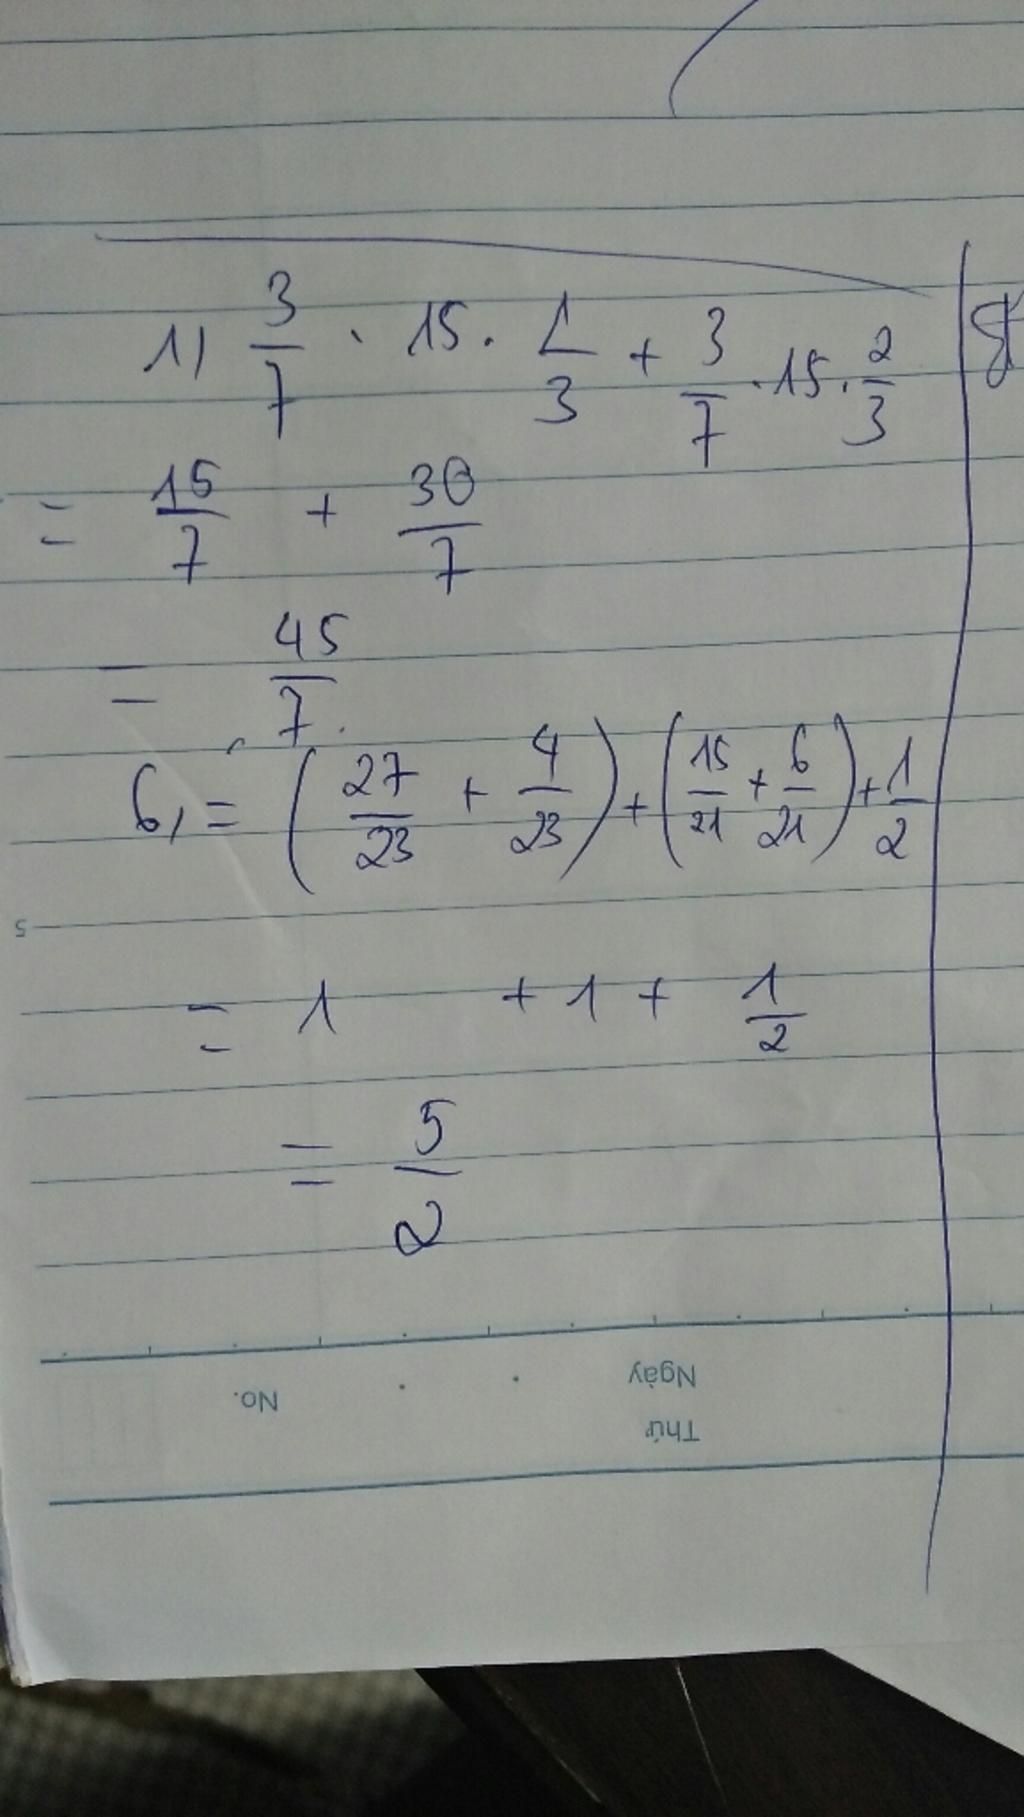 1) 3/7 . 15 . 1/3 + 3/7 . 15 . 2/3
= 15/7 + 30/7
= 45/7.
6, = (27/23 + 4/23) + (15/21 + 6/21) + 1/2
5
= 1 + 1 + 1/2
= 5/2
No. Ngày
Thứ